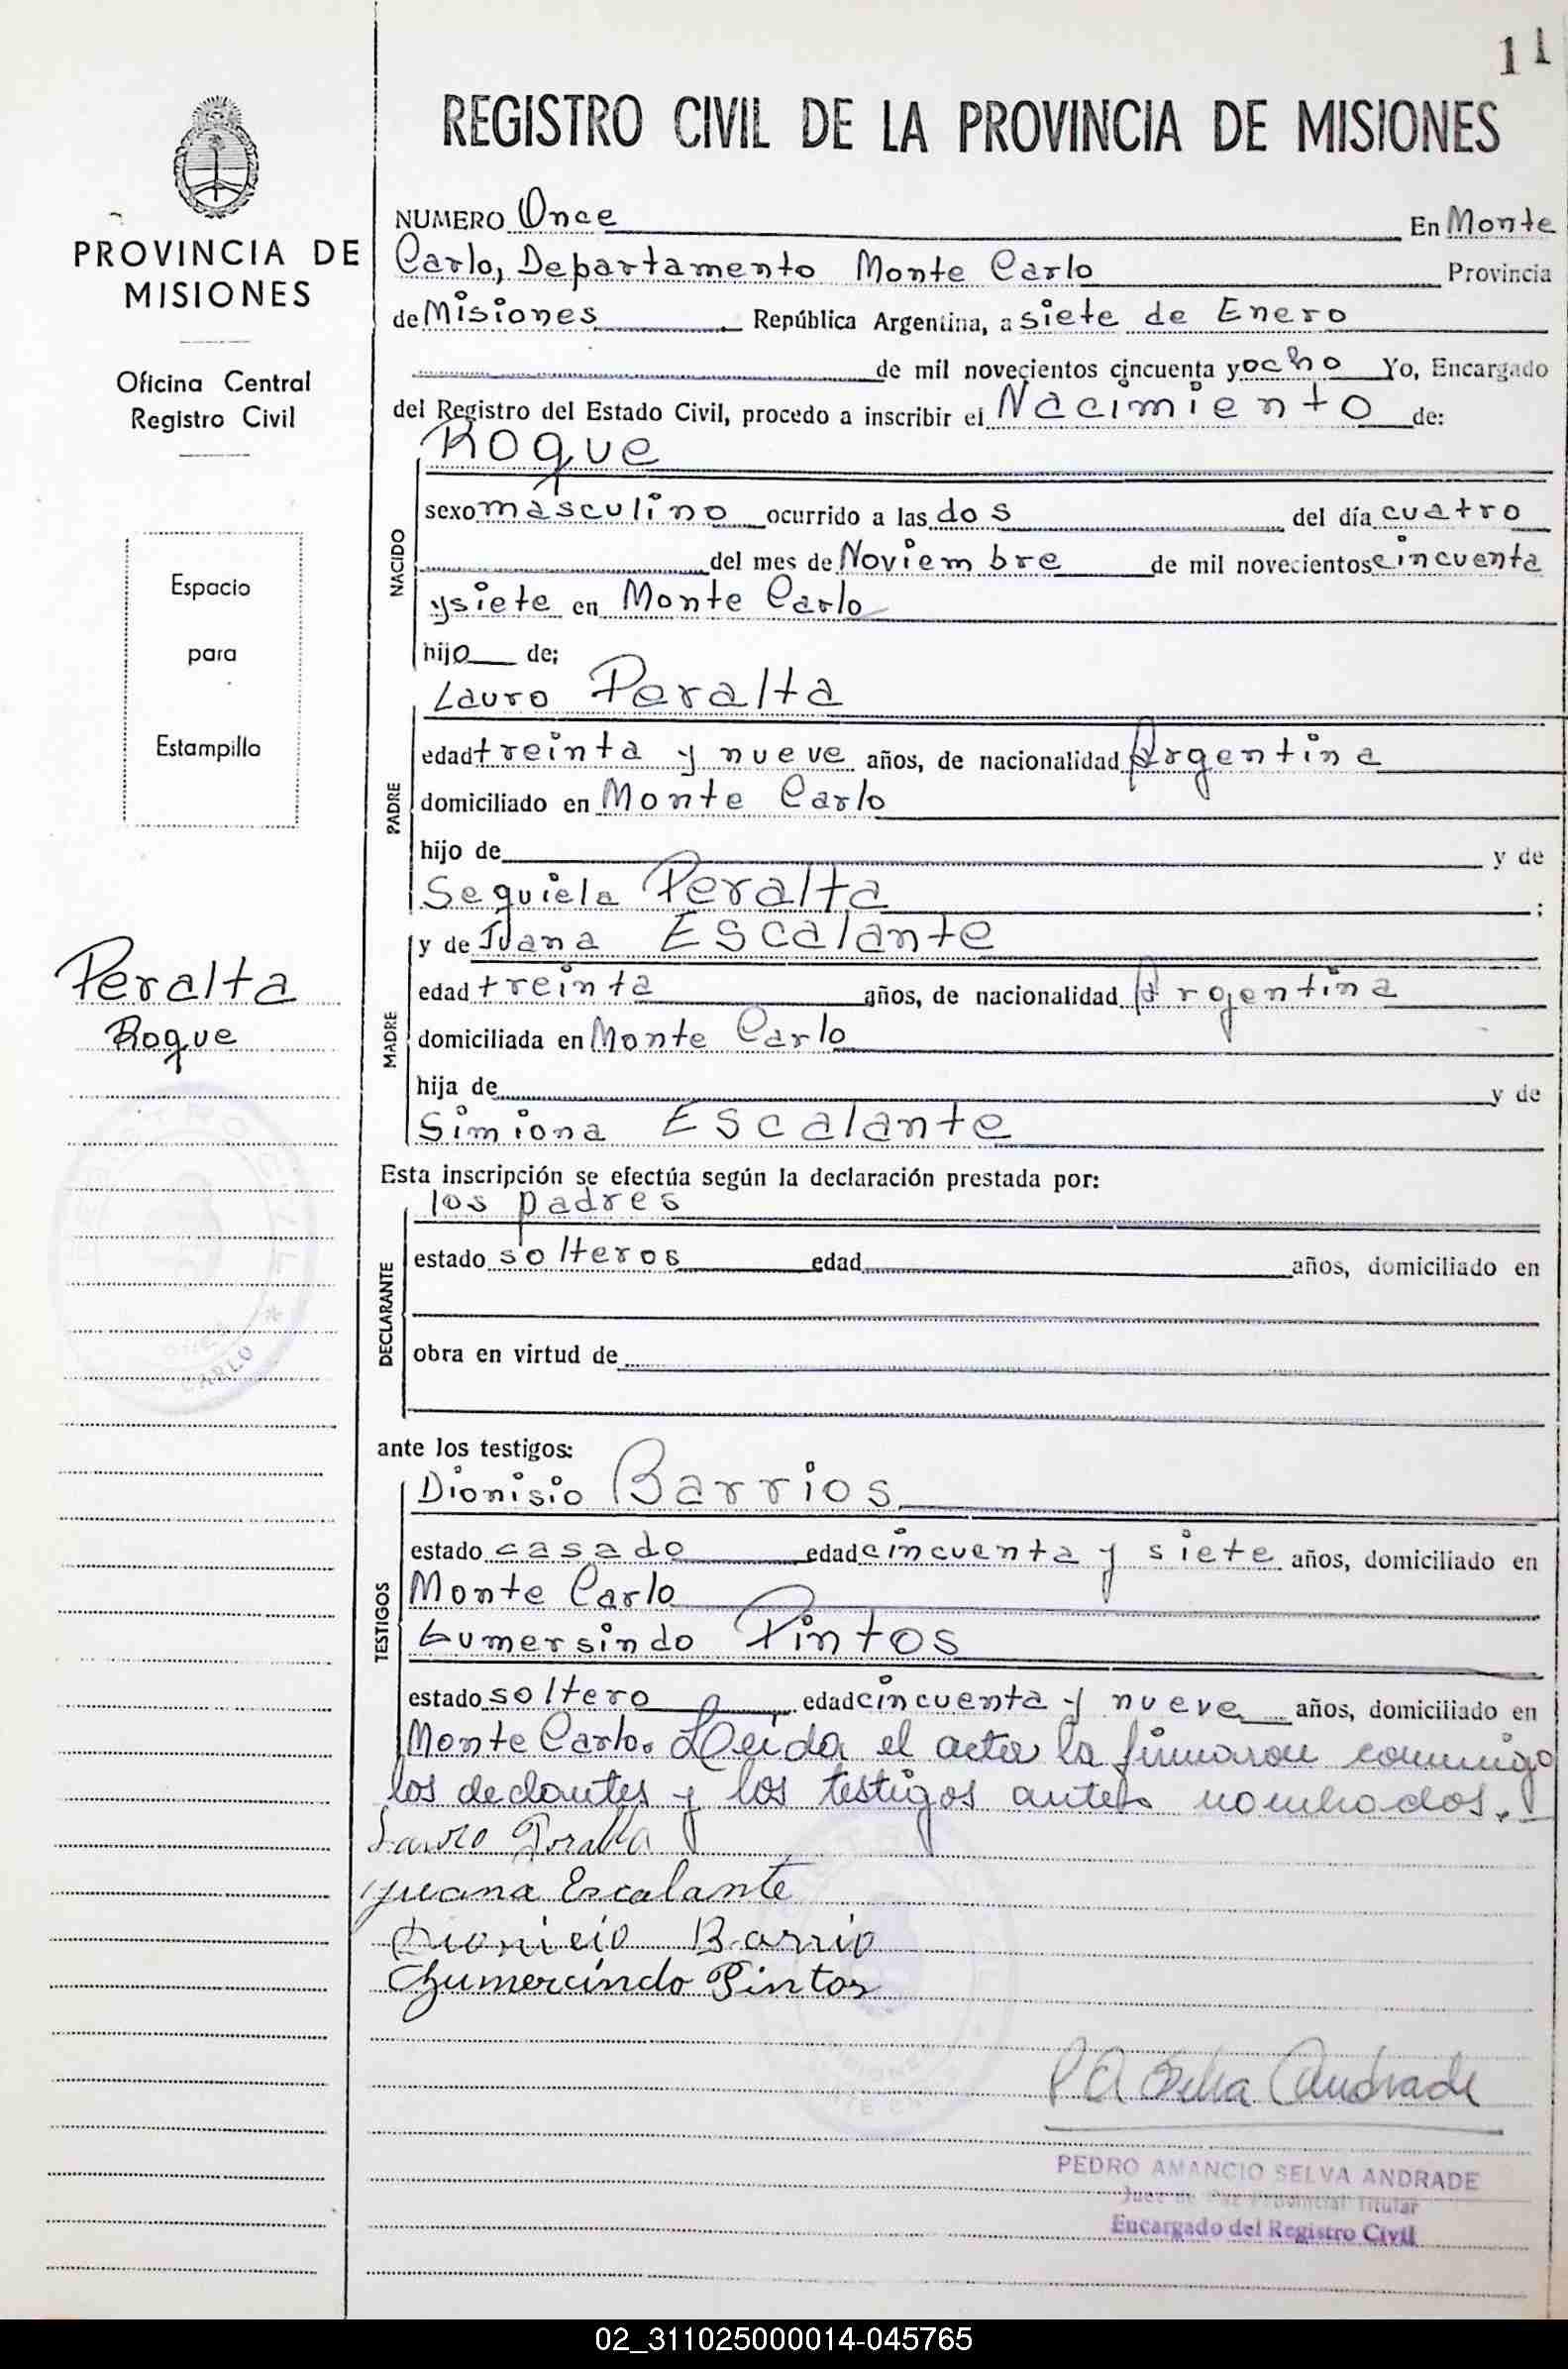 11
REGISTRO CIVIL DE LA PROVINCIA DE MISIONES
PROVINCIA DE
MISIONES
Oficina Central
Registro Civil
Espacio
para
Estampilla
Peralta
Roque
NUMERO Once En Monte
Carlo, Departamento Monte Carlo Provincia
de Misiones República Argentina, a siete de Enero
de mil novecientos cincuenta y ocho Yo, Encargado
del Registro del Estado Civil, procedo a inscribir el Nacimiento de:
NACIDO
Roque
sexo masculino ocurrido a las dos del día cuatro
del mes de Noviembre de mil novecientos cincuenta
y siete en Monte Carlo
hijo de;
PADRE
Lauro Peralta
edad treinta y nueve años, de nacionalidad Argentina
domiciliado en Monte Carlo
hijo de y de
Sequiela Peralta ;
MADRE
y de Juana Escalante
edad treinta años, de nacionalidad Argentina
domiciliada en Monte Carlo
hija de y de
Simiona Escalante
Esta inscripción se efectúa según la declaración prestada por:
DECLARANTE
los padres
estado solteros edad años, domiciliado en
obra en virtud de
ante los testigos:
TESTIGOS
Dionisio Barrios
estado casado edad cincuenta y siete años, domiciliado en
Monte Carlo
Gumersindo Pintos
estado soltero edad cincuenta y nueve años, domiciliado en
Monte Carlo. Leída el acta la firmaron conmigo
los declantes y los testigos antes nombrados.
Lauro Peralta
Juana Escalante
Dionicio Barrio
Gumercindo Pintos
P A Selva Andrade
PEDRO AMANCIO SELVA ANDRADE
Juez de Paz Provincial Titular
Encargado del Registro Civil
02_311025000014-045765